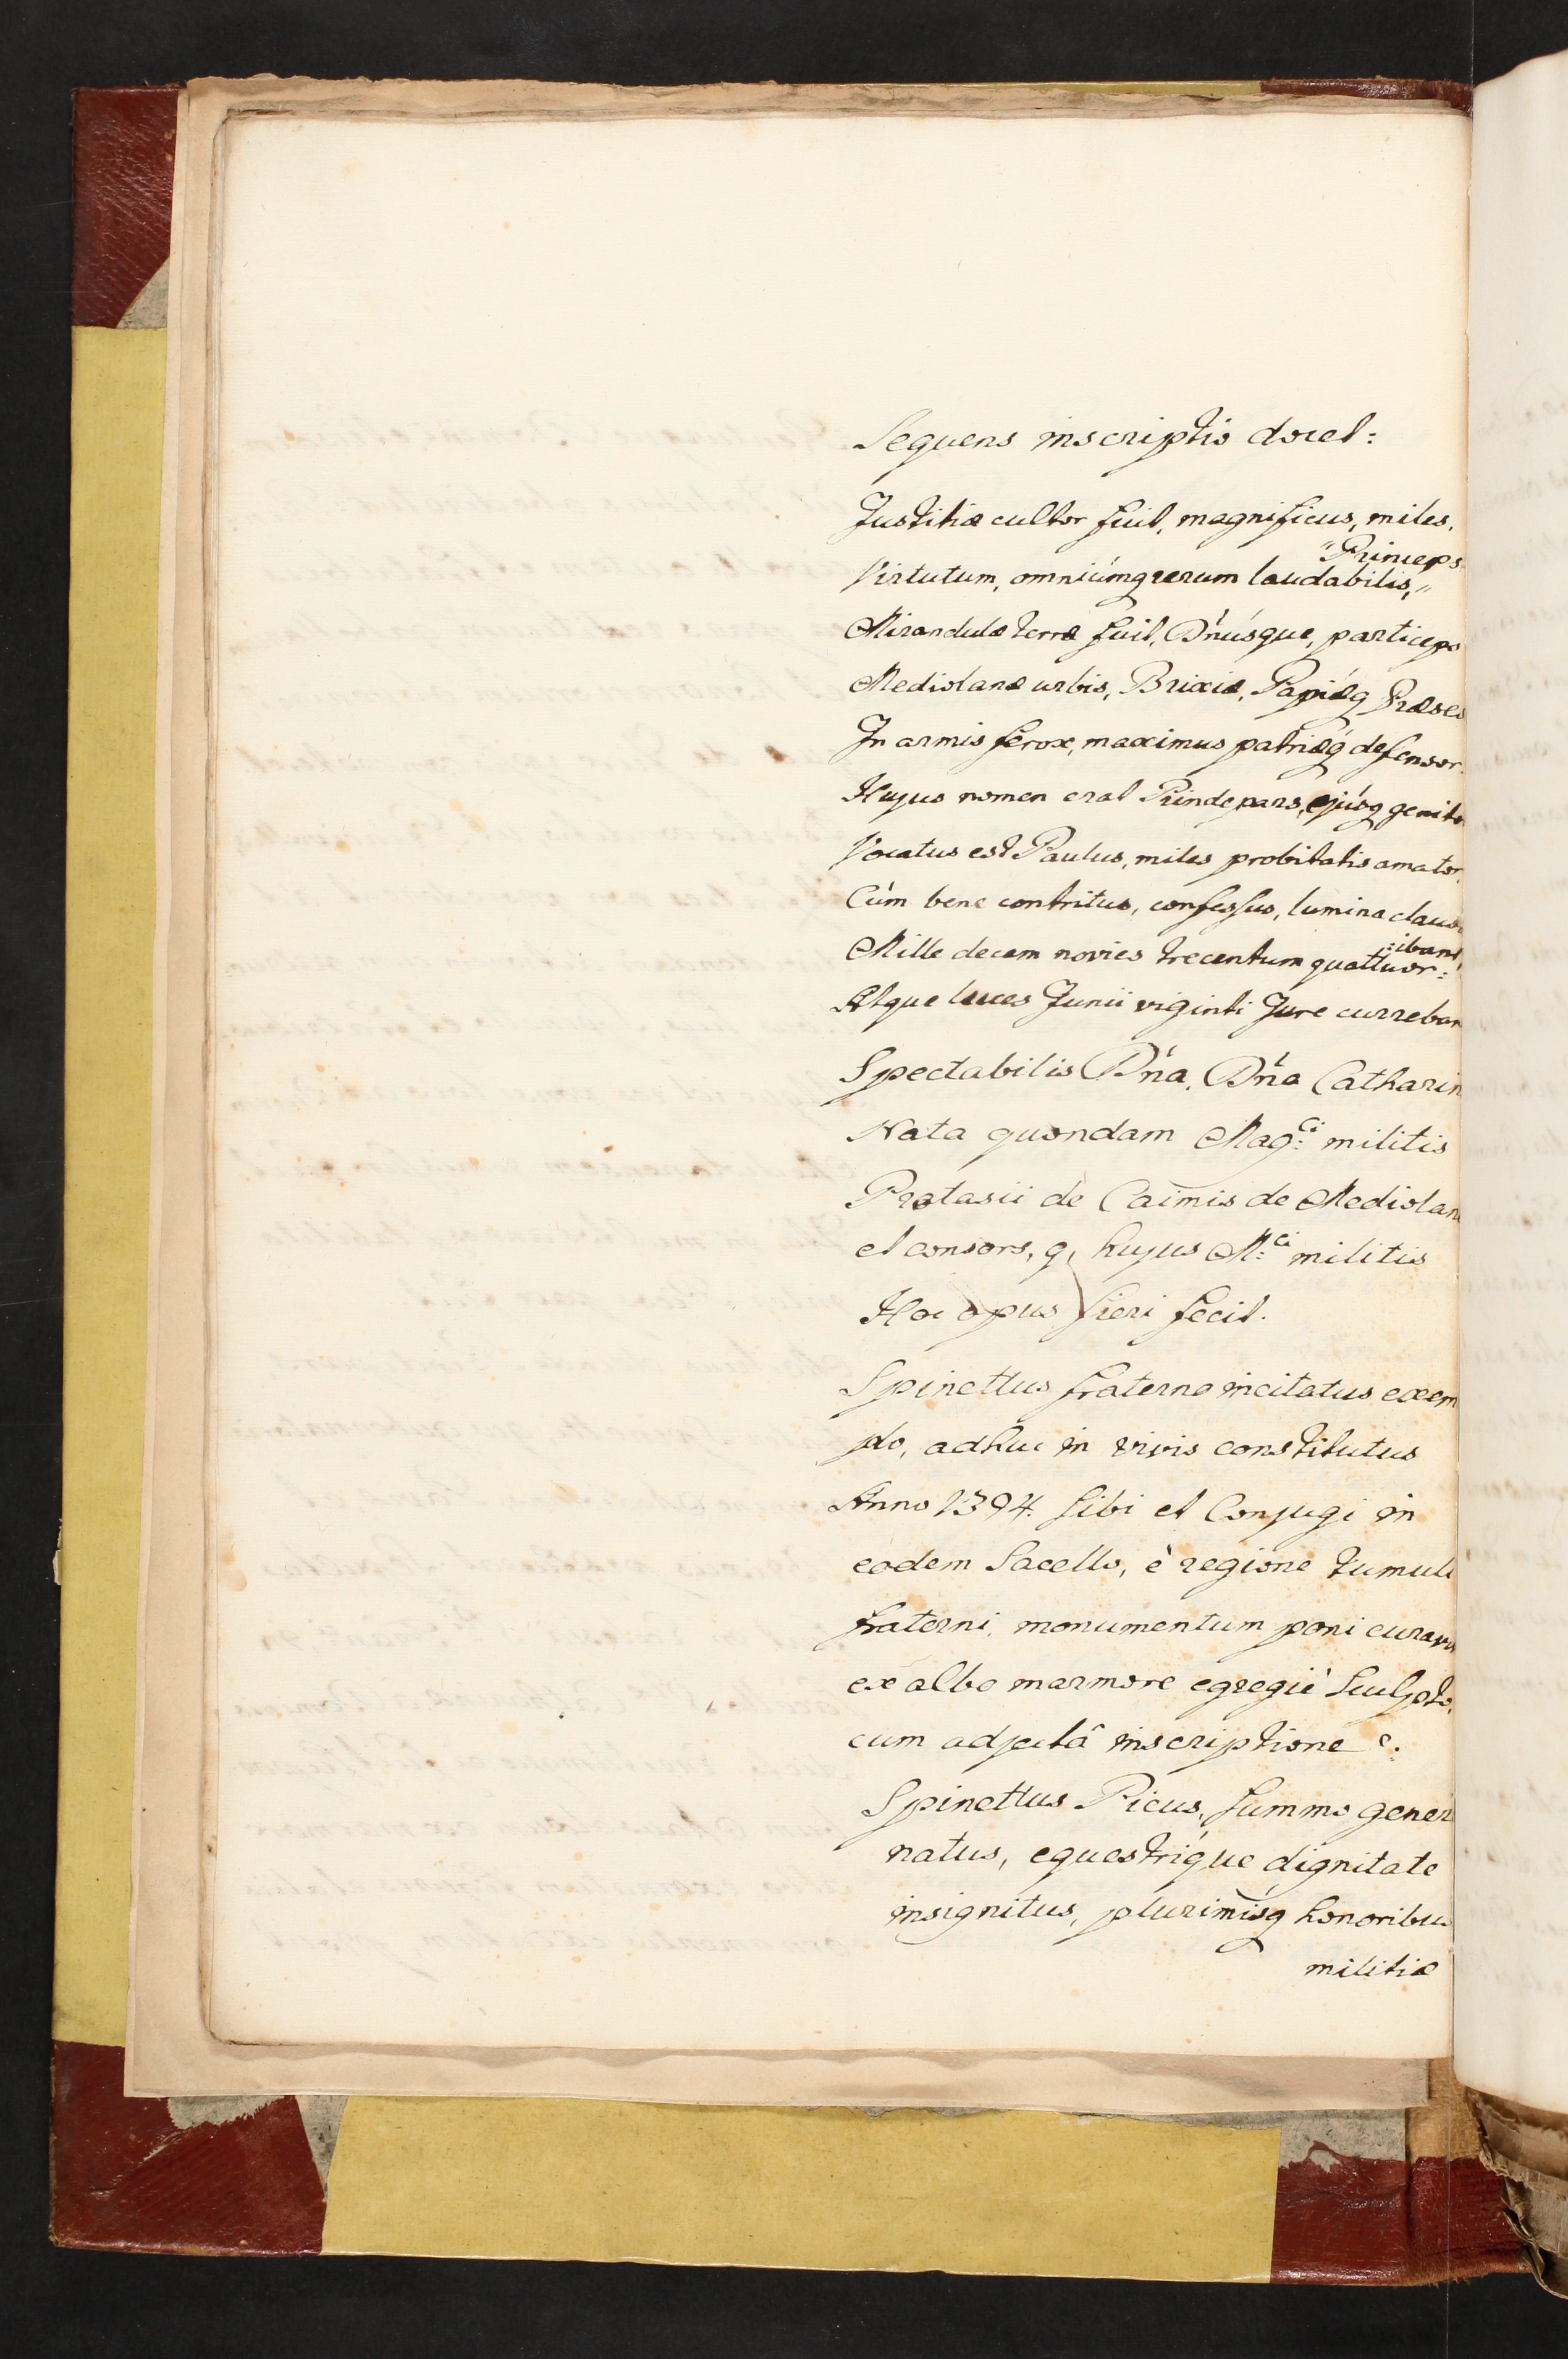 Sequens inscriptio docet:
Justitiæ cultor fuit, magnificus, miles.
"Princeps
Virtutum, omniúmq rerum laudabilis, "
Mirandulæ terræ fuit, Dńúsque, particeps
Mediolanæ urbis, Brixiæ, Papiǽq Præses
In armis ferox, maximus patriǽq defensor.
Hujus nomen erat Prindepars, ejúsq genito
Vocatus est Paulus, miles probitatis amator.
Cùm bene contritus, confessus, lumina claus
:ibant,
Mille decem novies trecentum quattuor:
Atque luces Junii viginti Jure curreban
Spectabilis Dńa, Dńa Catharin
Nata quondam Mag:ci militis
Protasii de Caimis de Mediolan
et consors, q, hujus M:ci militis
Hoc opus fieri fecit.
Spinettus fraterno incitatus exem
plo, adhuc in vivis constitutus
Anno 1394. sibi et Conjugi in
eodem Sacello, è regione tumuli
fraterni, monumentum poni curavi
ex albo marmore egregiè sculpto,
cum adjectâ inscriptione e:
Spinettus Picus, summo gener
natus, equestríque dignitate
insignitus, plurimísq honoribus
militiæ